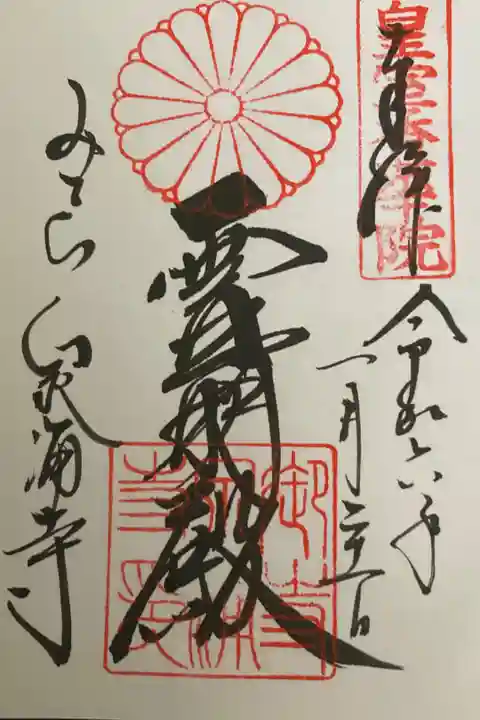 皇室香華院
奉拝
令和六年
一月二十一日
霊明殿
みてら
泉涌寺